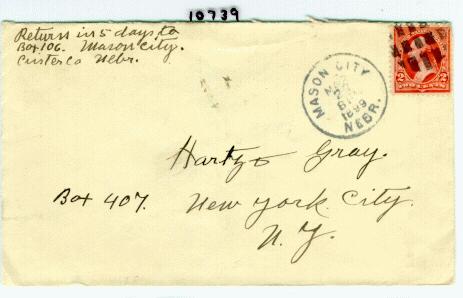 10739
Return in 5 days to
Box 106. Mason City.
Custer Co Nebr.
MASON CITY
1899
NEBR.
2 2
Hartz & Gray.
Box 407. New York City.
N. Y.